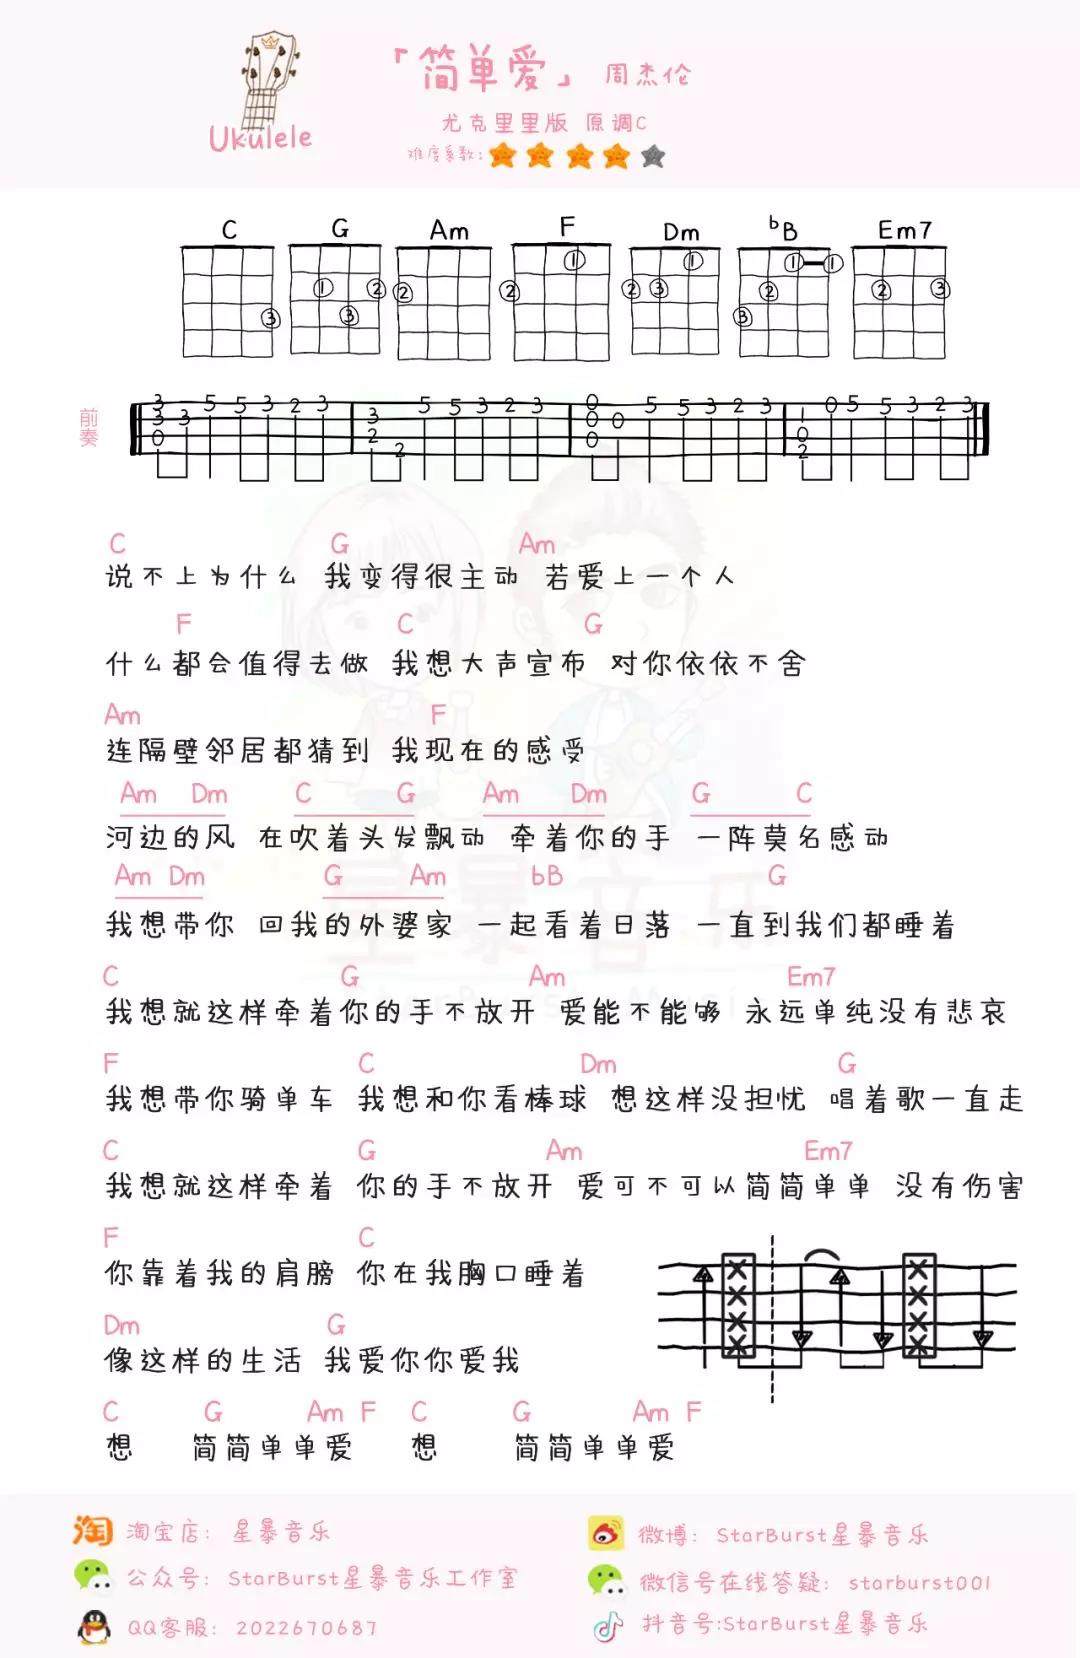 Ukulele
「简单爱」 周杰伦
尤克里里版 原调C
难度系数:
C G Am F Dm bB Em7
前奏
C G Am
说不上为什么 我变得很主动 若爱上一个人
F C G
什么都会值得去做 我想大声宣布 对你依依不舍
Am F
连隔壁邻居都猜到 我现在的感受
Am Dm C G Am Dm G C
河边的风 在吹着头发飘动 牵着你的手 一阵莫名感动
Am Dm G Am bB G
我想带你 回我的外婆家 一起看着日落 一直到我们都睡着
C G Am Em7
我想就这样牵着你的手不放开 爱能不能够 永远单纯没有悲哀
F C Dm G
我想带你骑单车 我想和你看棒球 想这样没担忧 唱着歌一直走
C G Am Em7
我想就这样牵着 你的手不放开 爱可不可以简简单单 没有伤害
F C
你靠着我的肩膀 你在我胸口睡着
Dm G
像这样的生活 我爱你你爱我
C G Am F C G Am F
想 简简单单爱 想 简简单单爱
星暴音乐
淘宝店: 星暴音乐
公众号: StarBurst星暴音乐工作室
QQ客服: 2022670687
微博: StarBurst星暴音乐
微信号在线答疑: starburst001
抖音号:StarBurst星暴音乐